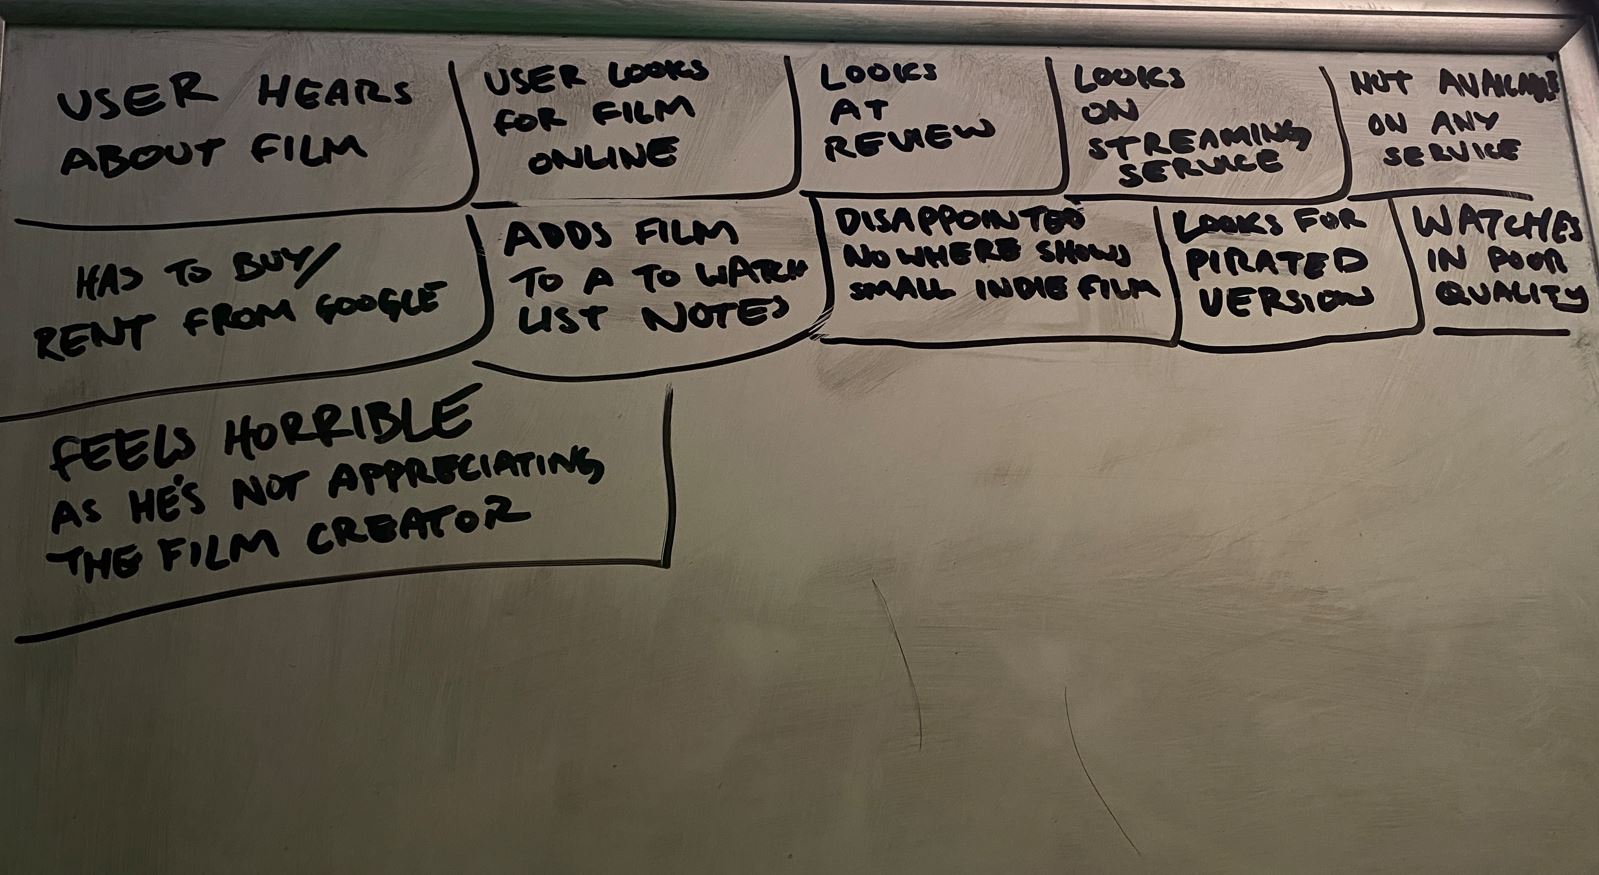 USER HEARS
ABOUT FILM
USER LOOKS
FOR FILM
ONLINE
LOOKS
AT
REVIEW
LOOKS
ON
STREAMING
SERVICE
NOT AVAILABLE
ON ANY
SERVICE
HAS TO BUY/
RENT FROM GOOGLE
ADDS FILM
TO A TO WATCH
LIST NOTES
DISAPPOINTED
NO WHERE SHOWS
SMALL INDIE FILM
LOOKS FOR
PIRATED
VERSION
WATCHES
IN POOR
QUALITY
FEELS HORRIBLE
AS HE'S NOT APPRECIATING
THE FILM CREATOR